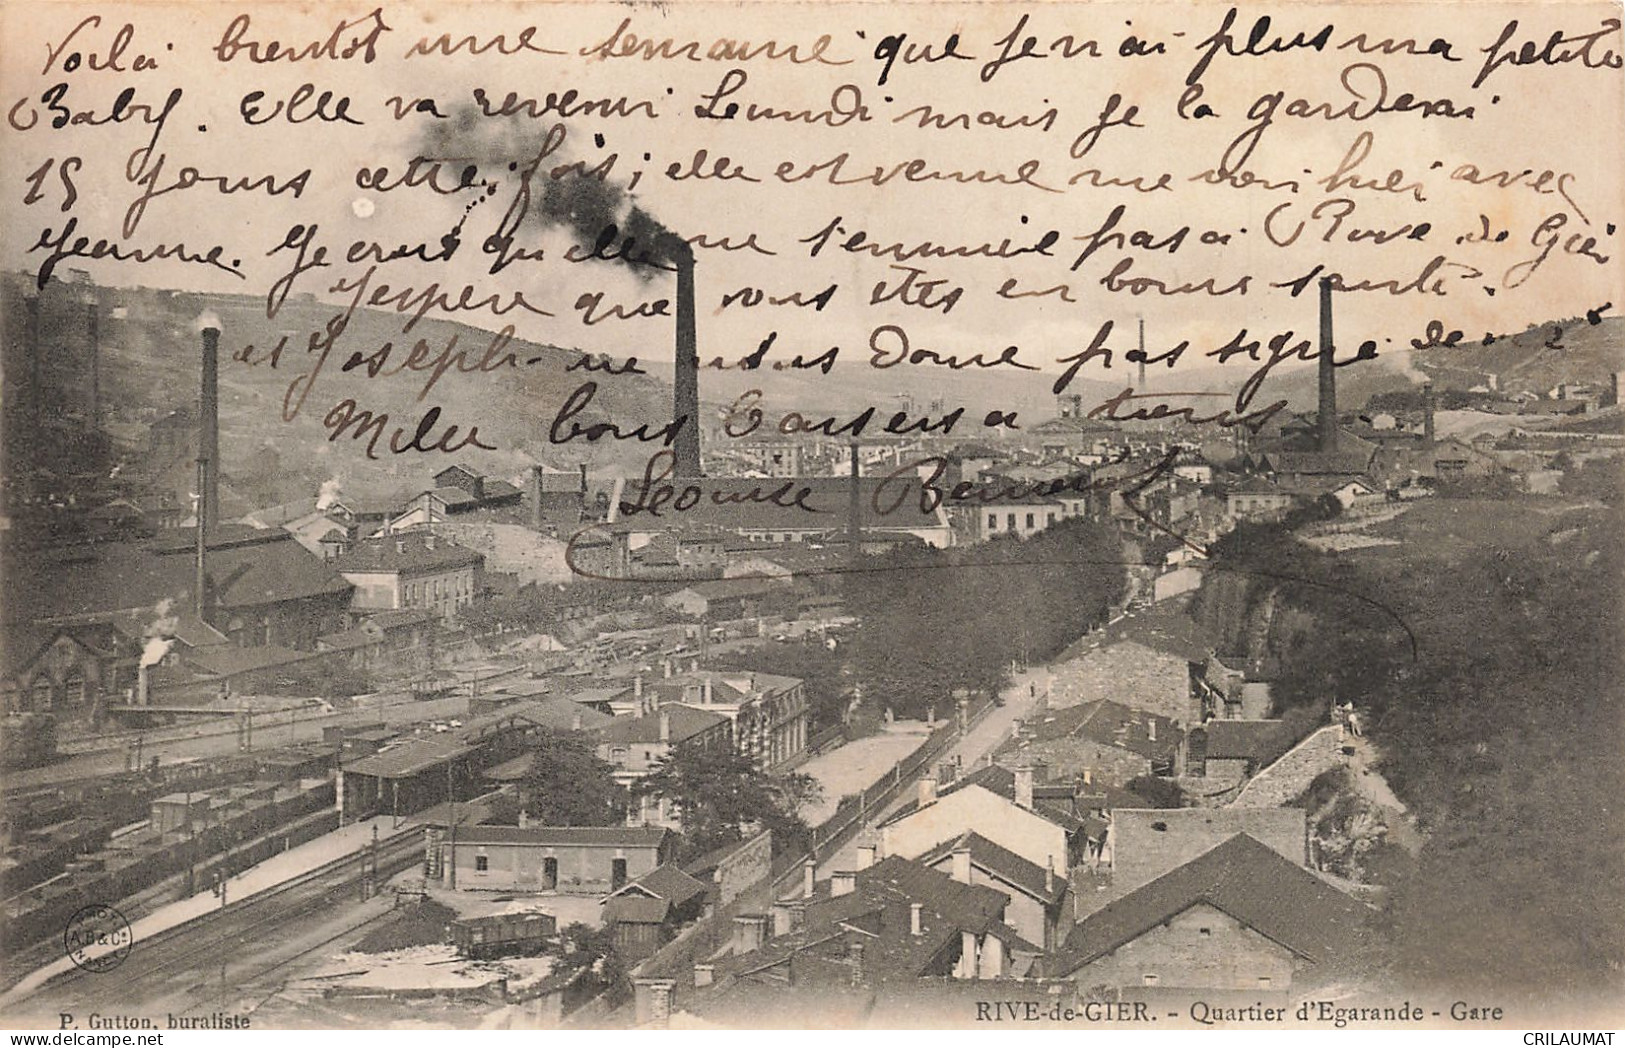 Voila bientôt une semaine que je n'ai plus ma petite
Baby. Elle va revenir Leundi mais je la garderai
15 jours cette fois; elle est venue me voir hier avec
Jeanne. Je crois qu'elle ne s'ennuie pas a Rive de Gier
J'espère que vous êtes en bonne santé.
et Joseph ne vous donne pas signe de vie
Mille bons baisers a tous
Leouise
A.B & Cie
NANCY
P. Gutton, buraliste
RIVE-de-GIER. - Quartier d'Egarande - Gare
CRILAUMAT